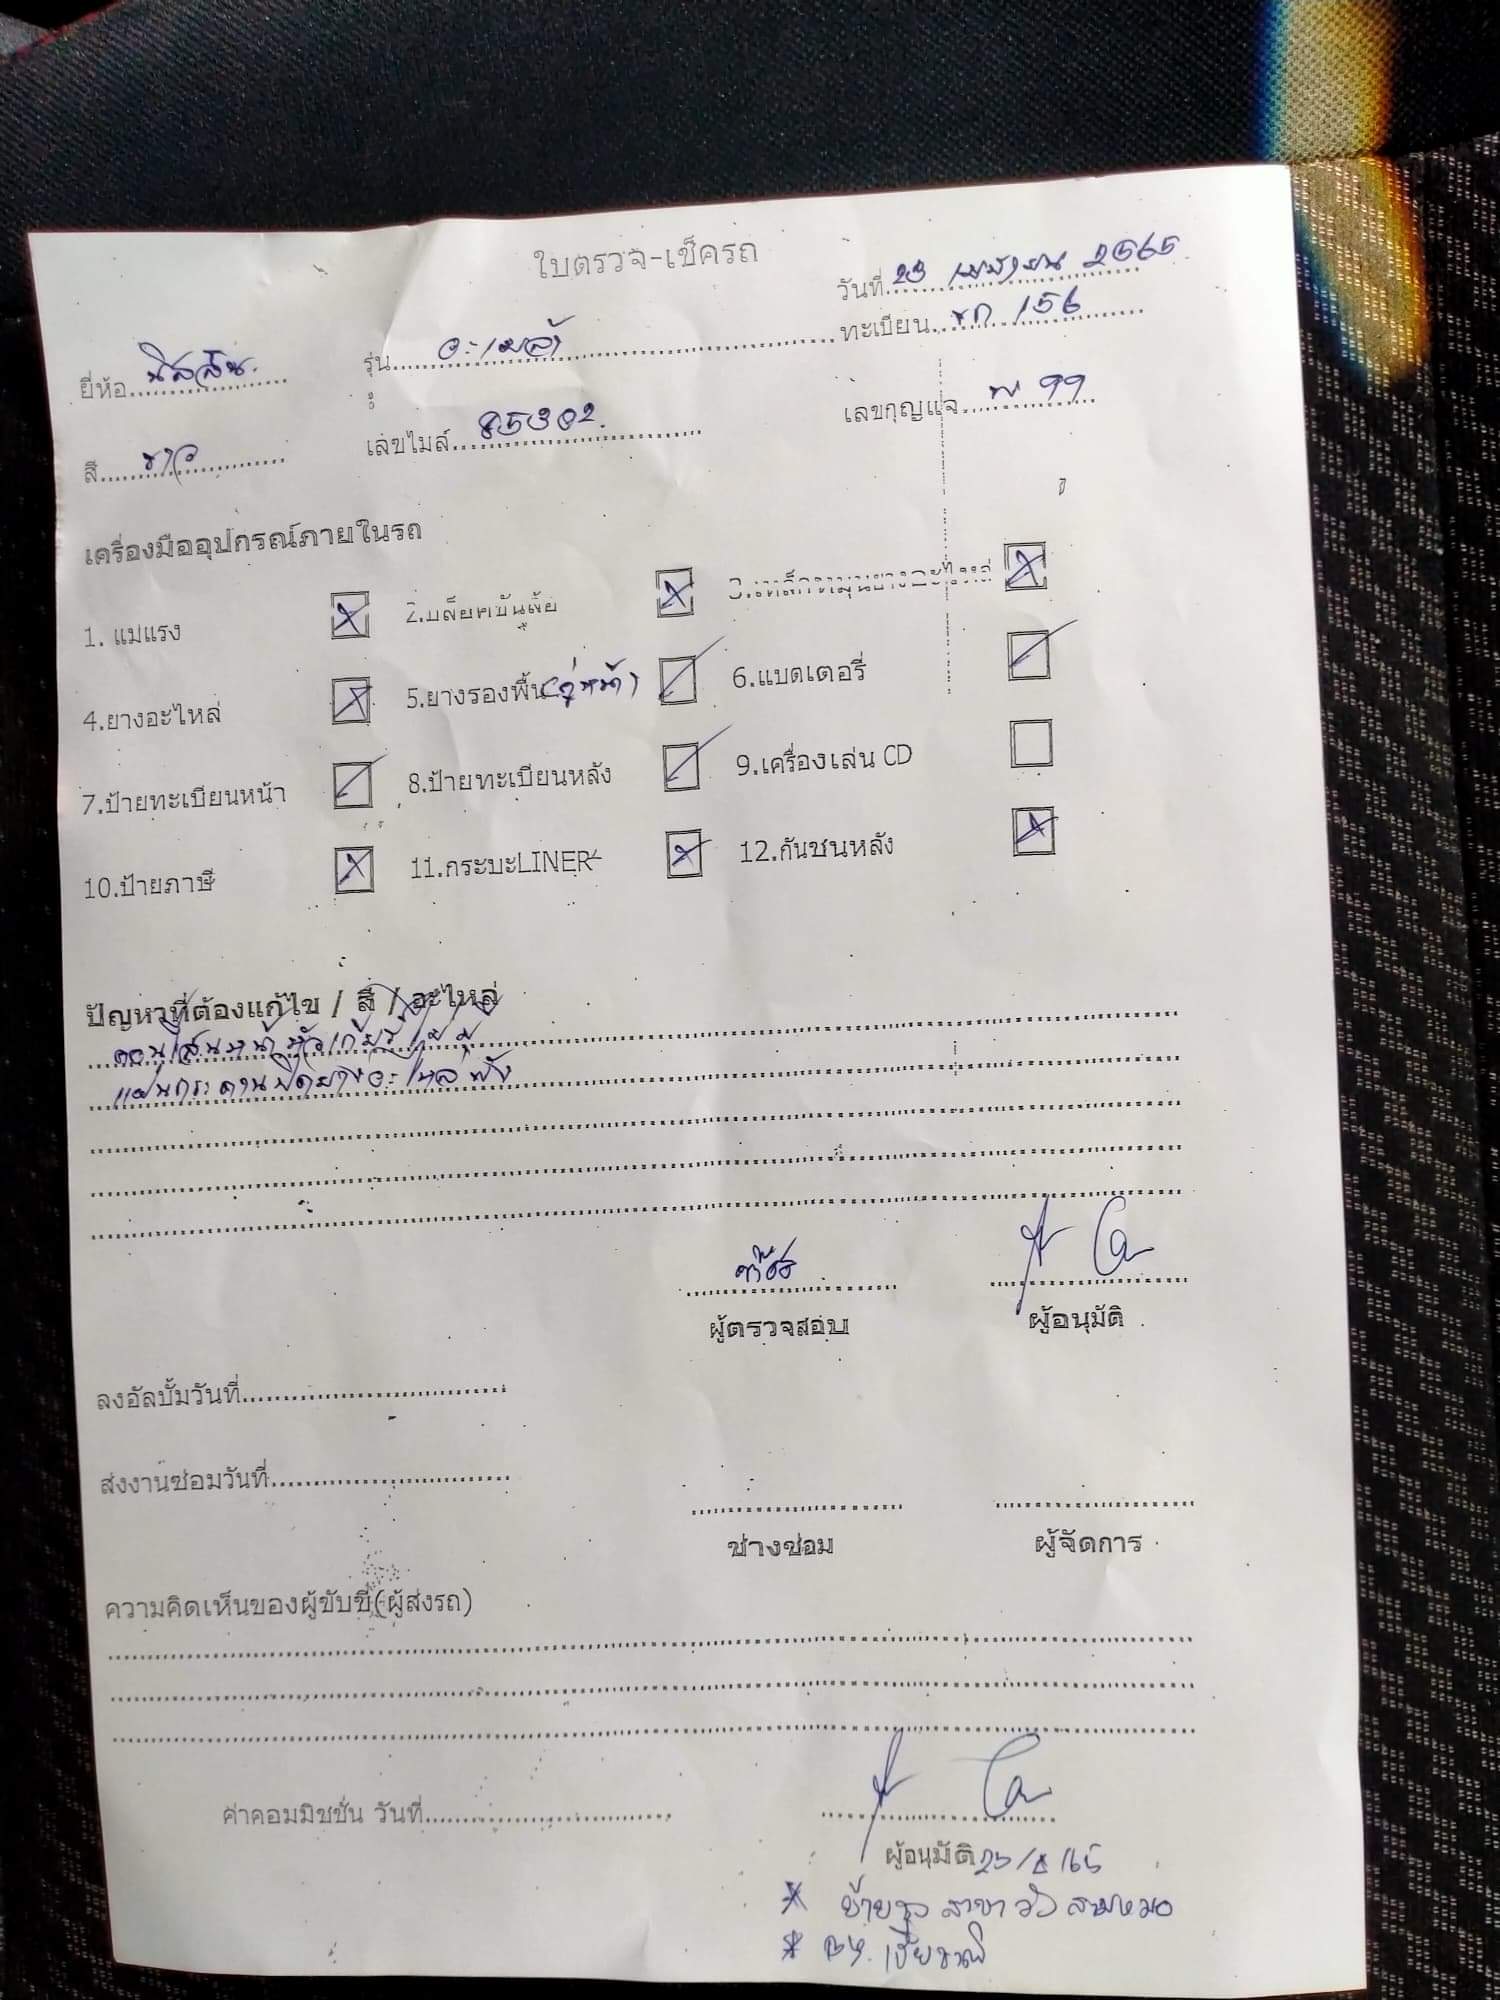 ใบตรวจ-เช็ครถ
วันที่ 23 เมษายน 2565
ยี่ห้อ นิสสัน รุ่น อะเมล่า ทะเบียน ขก 156
สี ขาว เลขไมล์ 85302 เลขกุญแจ 99
เครื่องมืออุปกรณ์ภายในรถ
1. แม่แรง 2.บล็อคขันล้อ 3.เหล็กหมุนยางอะไหล่
4.ยางอะไหล่ 5.ยางรองพื้น (คู่หน้า) 6.แบตเตอรี่
7.ป้ายทะเบียนหน้า 8.ป้ายทะเบียนหลัง 9.เครื่องเล่น CD
10.ป้ายภาษี 11.กระบะLINER 12.กันชนหลัง
ปัญหาที่ต้องแก้ไข / สี / อะไหล่
คอนโซนหน้า หัวเกียร์ไม่มี
แผ่นกระดานปิดยางอะไหล่ พัง
ผู้ตรวจสอบ ผู้อนุมัติ
ลงอัลบั้มวันที่
ส่งงานซ่อมวันที่
ช่างซ่อม ผู้จัดการ
ความคิดเห็นของผู้ขับขี่(ผู้ส่งรถ)
ค่าคอมมิชชั่น วันที่
ผู้อนุมัติ
* สาขา
*